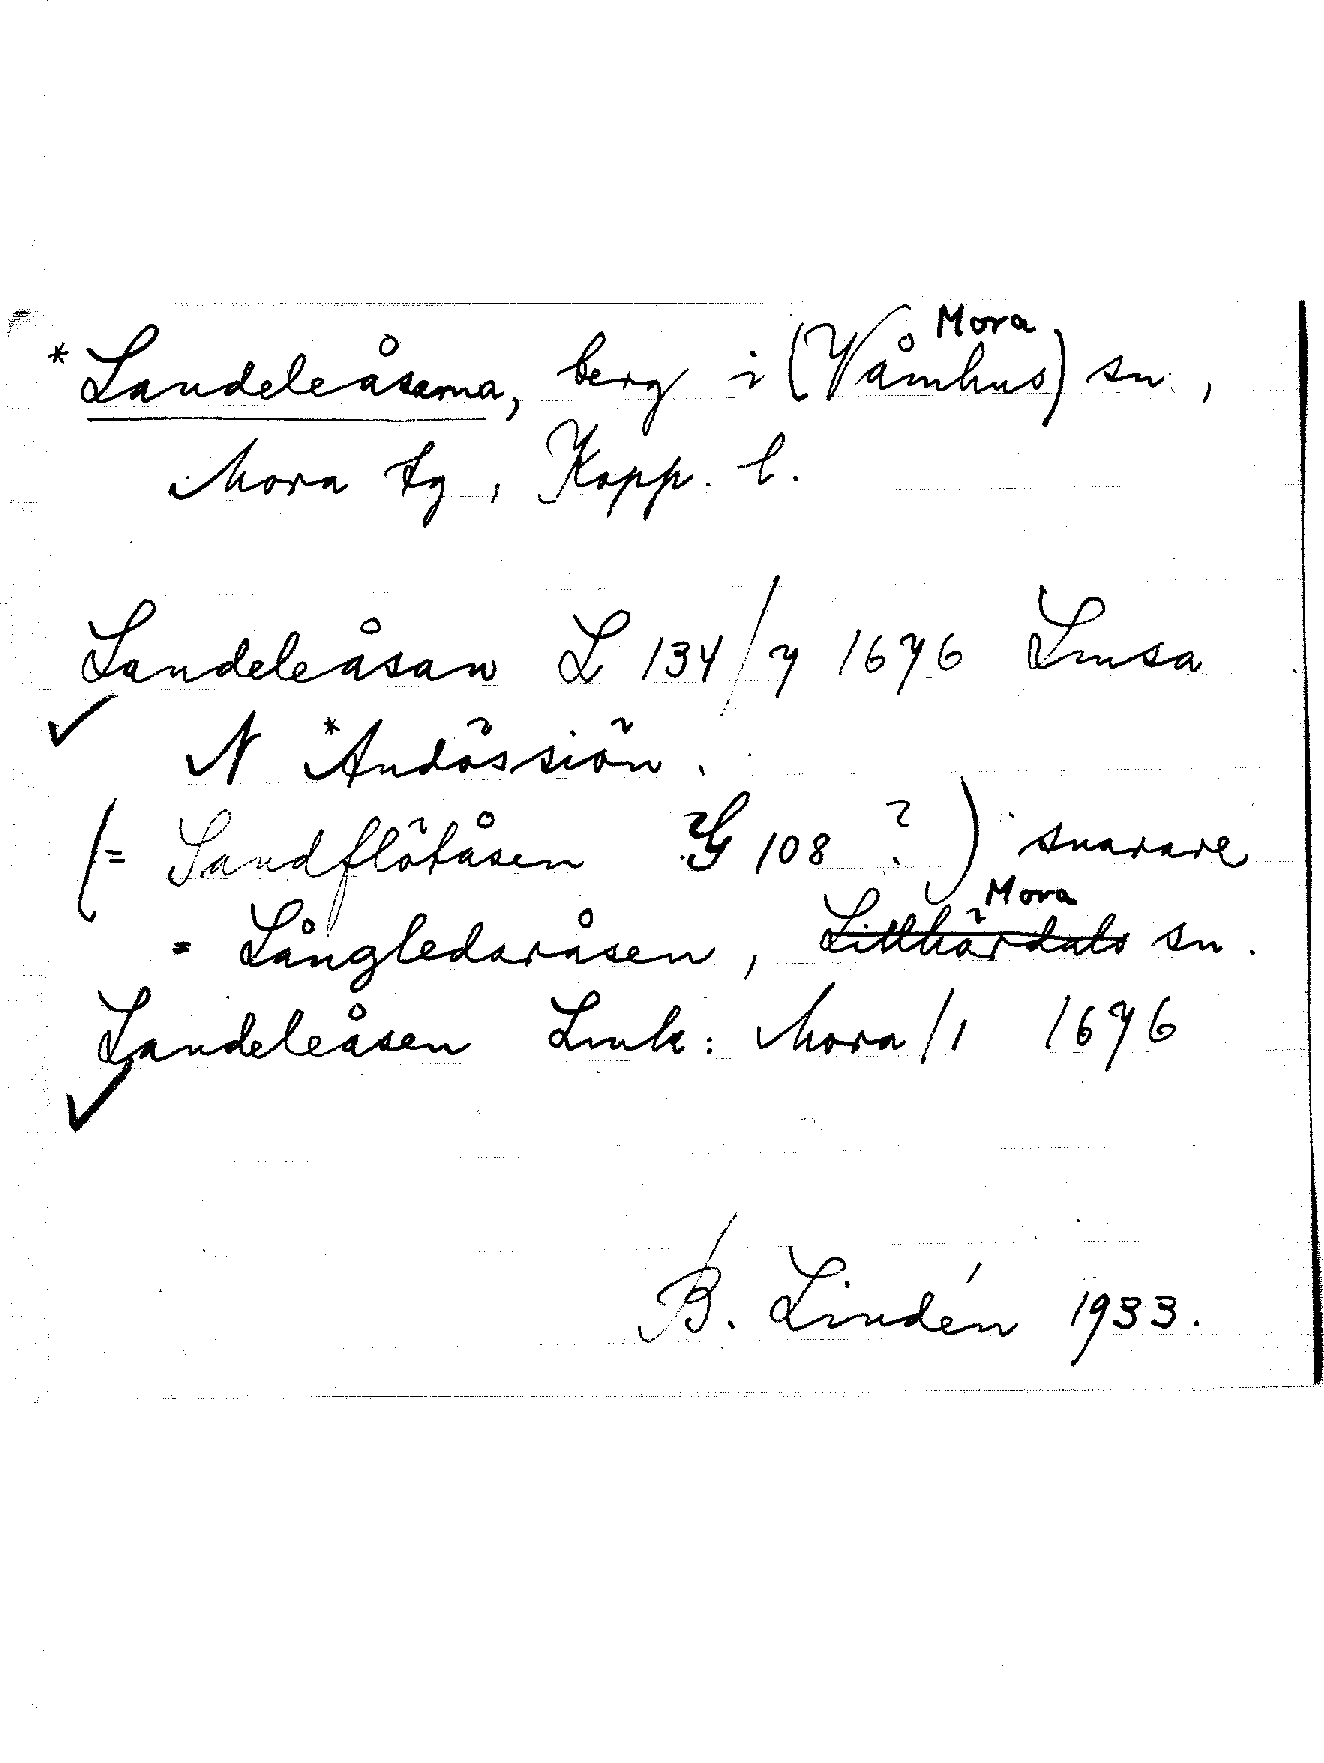 Mora
*Landeleåserna, berg i (Våmhus) sn.,
Mora tg, Kopp. l.
Landeleåsan L 134/7 1676 Lmsa
✓
N *Andössiön.
(= Sandflötåsen G 108 ?) snarare
Mora
= Långledaråsen, Lillhärdals sn.
Landeleåsen Lmk: Mora/1 1676
✓
B. Lindén 1933.